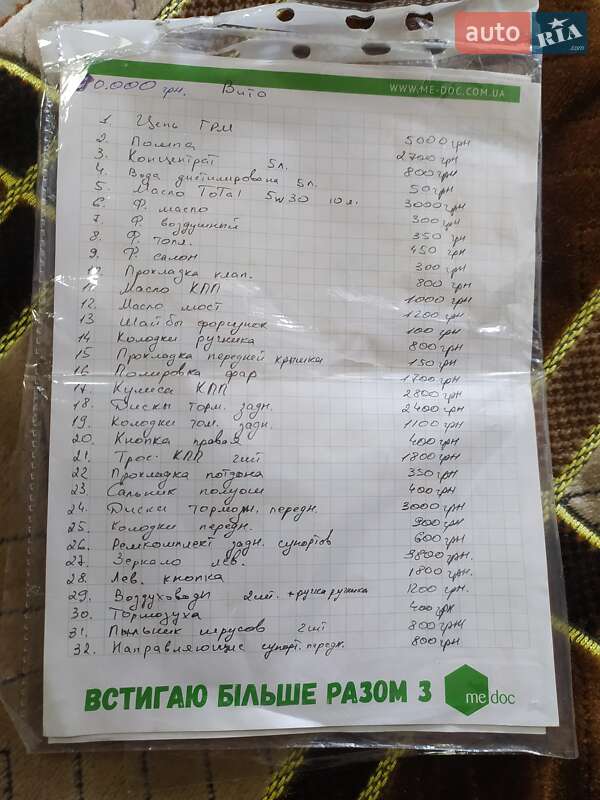 auto RIA .com
WWW.ME-DOC.COM.UA
0.000 грн. Вито
1 Цепь ГРМ 5000 грн
2. Помпа 2700 грн
3. Концентрат 5 л. 800 грн
4. Вода дистилирована 5 л. 50 грн
5. Масло ToTal 5w30 10 л. 3000 грн
6. Ф. масло 300 грн
7. Ф. воздушный 350 грн
8. Ф. топл. 450 грн
9. Ф. салон 300 грн
10. Прокладка клап. 800 грн
11. Масло КПП 1000 грн
12. Масло мост 1200 грн
13 Шайбы форсунок 100 грн
14 Колодки ручника 800 грн
15 Прокладка передней крышка 150 грн
16 Полировка фар 1700 грн
17. Кулиса КПП 2800 грн
18. Диски торм. задн. 2400 грн
19. Колодки том. задн. 1100 грн
20. Кнопка правая 400 грн
21. Трос. КПП 2 шт 1800 грн
22 Прокладка потдона 350 грн
23. Сальник полуоси 400 грн
24. Диски передн. 3000 грн
25. Колодки передн. 900 грн
26. Ремкомплект задн. супортов 600 грн
27. Зеркало лев. 3800 грн.
28. Лев. кнопка 1800 грн.
29. Воздуховоды 2 шт. + ручка ручника 1200 грн.
30. Тормозуха 400 грн
31. Пыльник шрусов 2 шт 800 грн
32. Направляющие супорт. передн. 800 грн
ВСТИГАЮ БІЛЬШЕ РАЗОМ З me doc